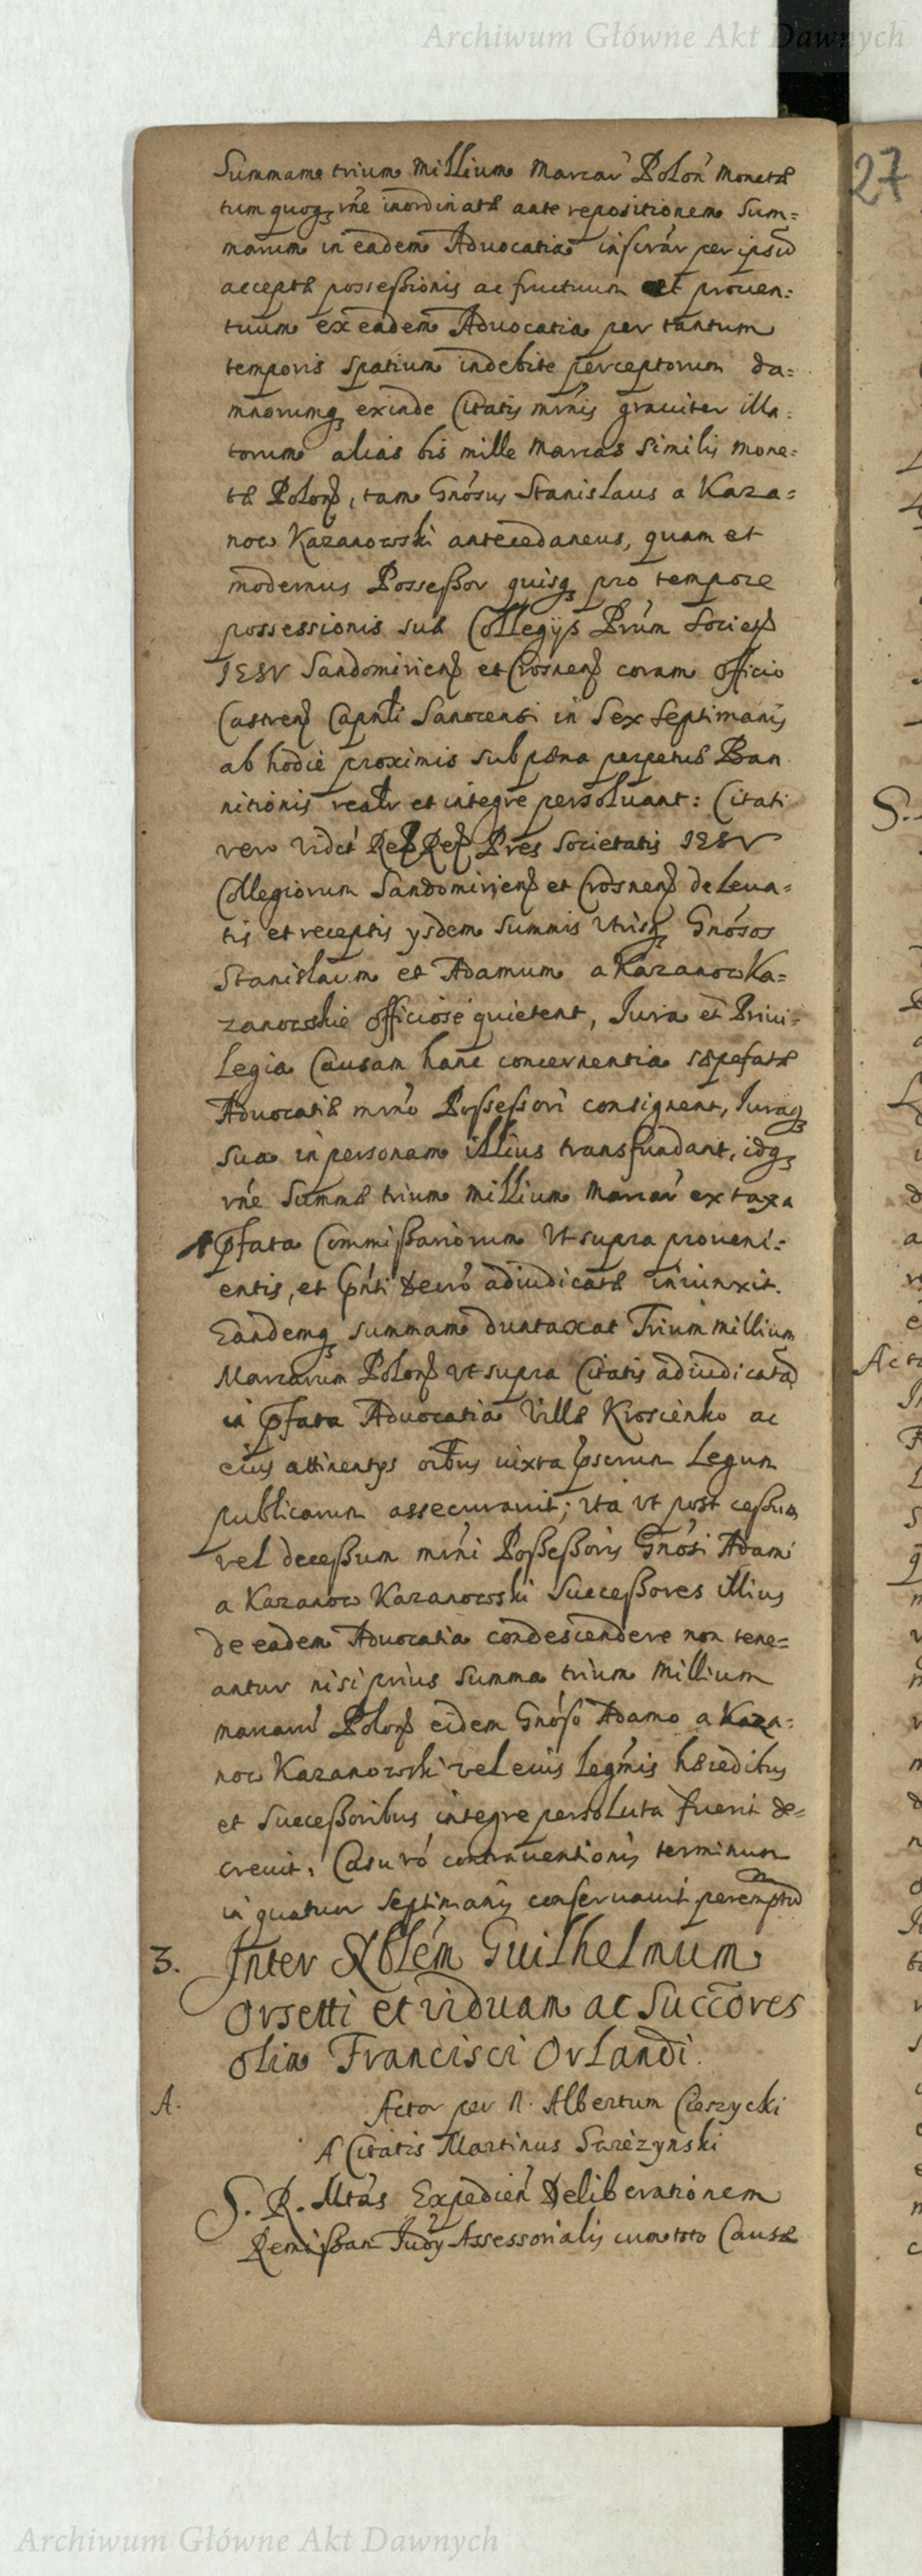 Archiwum Główne Akt Dawnych
27
Summam trium Millium Marcar' Polon' Monetæ
tum quoq; rñe inordinatæ ante repositionem Sum=
marum in eadem Aduocatia inscrar' per ipsũ
acceptæ possessionis ac fructuum et prouen:
tuum ex eadem Aduocatia per tantum
temporis spatium indebite perceptorum da=
mnorumq; exinde Citatis mrñis grauiter illa:
torum alias bis mille Marcas similis mone:
tæ Polon̄, tam Gnósus Stanislaus a Kaza=
now Kazanowski antecedaneus, quam et
modernus Possessor quisq; pro tempore
possessionis sub Collegijs Prúm Societ̄
IESV Sandomirien̄ et Crosnen̄ coram officio
Castren̄ Capnli Sanocensi in Sex Septimanis
ab hodie proximis sub pæna perpetuæ Ban
nitionis realr et integre persoluant: Citati
vero videt Patres Societatis IESV
Collegiorum Sandomirien̄ et Crosnen̄ de leua=
tis et receptis ysdem summis vtrisq; Gnósos
Stanislaum et Adamum a Kazanow Ka=
zanowskie officiosé quietent, Iura et Priui=
legia Causam hanc concernentia sæpefatæ
Aduocatiæ mrno Possessori consignent, Iuraq;
sua in personam illius transfundant, idq;
rñe Summæ trium millium Marcar' ex taxa
pfata Commissariorum vt supra proueni:
entis, et pñti Decró adiudicatæ iniunxit.
Eandemq; summam duntaxat Trium millium
Marcarum Polon̄ vt supra Citatis adiudicatã
in pfata Aduocatia Villæ Krościenko ac
eius attinentys oībus iuxta pscrum Legum
publicarum assecurauit; ita vt post cessum
vel decessum mrñi Possessoris Gnósi Adami
a Kazanow Kazanowski Successores illius
de eadem Aduocatia condescendere non tene=
antur nisi prius summa trium millium
marcarú Polon̄ eidem Gnóso Adamo a Kaza=
now Kazanowski vel eius legmis hæredibus
et Successoribus integre persoluta fuerit de=
creuit. Casu vó contrauentionis terminum
in quatuor Septimanis conseruauit peremptũ
3. Inter Nblém Guilhelmum
Orsetti et viduam ac Succores
olim Francisci Orlandi.
A. Actor per N. Albertum Cieszycki
A Citatis Martinus Surezynski
S. R. Mtás Expedień Deliberationem
Remissan Iudy Assessorialis cum toto Causæ
Archiwum Główne Akt Dawnych